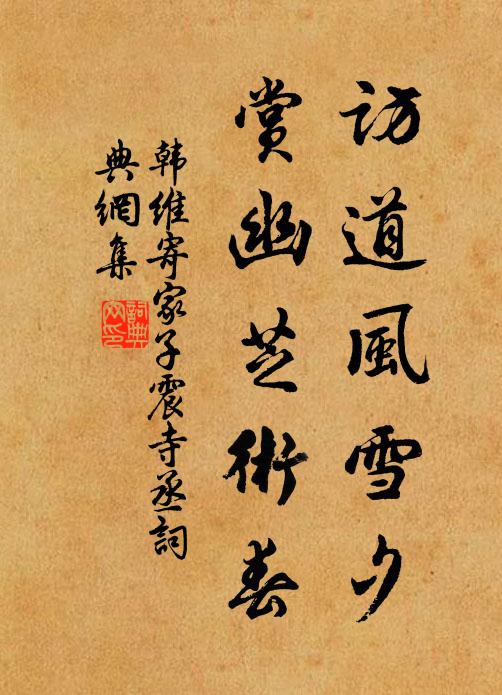 訪道風雪夕
賞幽芝術春
韩維寄家子震寺丞詞
典網集
詞典网印